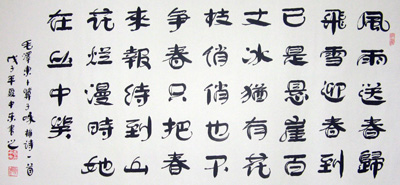 風雨送春歸
飛雪迎春到
已是悬崖百
丈冰猶有花
枝俏俏也不
争春只把春
來報待到山
花烂漫時她
在丛中笑
毛澤東卜算子咏梅詩一首
戊子年